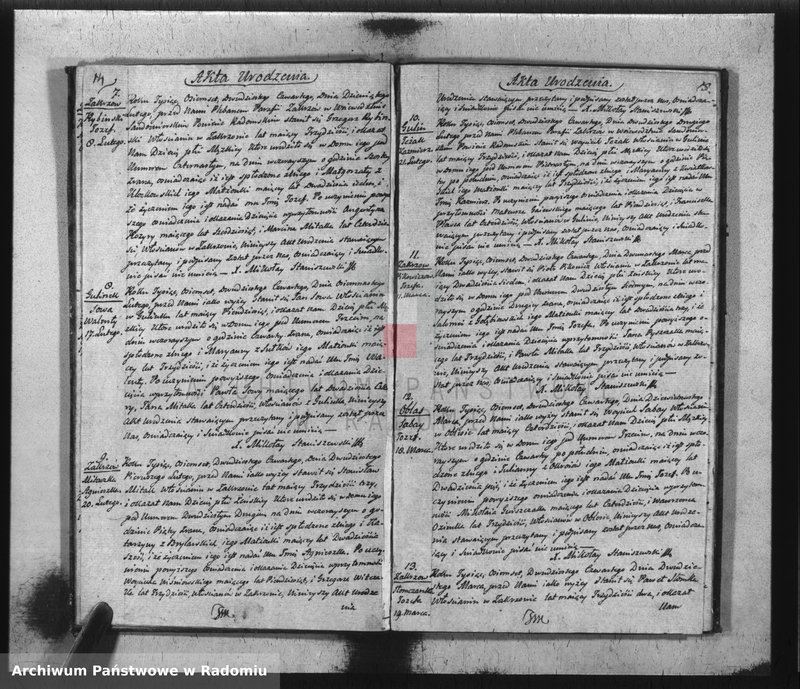 14
Akta Urodzenia
7.
Zakrzow
Rybinski
Jozef.
8. Lutego.
Roku Tysiąc, Ośmset, Dwudziestego Czwartego, Dnia Dziewiątego
Lutego, przed Nami Plebanem Parafii Zakrzów w Woiewództwie
Sandomierskim Powiecie Radomskim stawił się Grzegorz
Włościanin w Zakrzowie lat maiący Trzydzieści, i okazał
Nam Dziecię płci Męzkiey, które urodziło się w Domu iego pod
Numerem Czternastym, na dniu wczorayszym o godzinie
zrana, oświadczaiąc iż iest spłodzone z niego i Małgorzaty z
iego Małżonki maiącey lat Dwadzieścia
iż życzeniem iego iest nadać mu Imię Jozef. Po uczynieniu powyż-
szego oświadczenia i okazania Dziecięcia w przytomności Augustyna
Kozyry maiącego lat Sześdziesiąt, i Marcina Mitalka lat Czterdzie-
ści Włościanów w Zakrzowie, Ninieyszy Akt Urodzenia stawaiącym
przeczytany i podpisany został przez Nas, Oświadczaiący i Świadko-
wie pisać nie umieią — X. Mikołay Staniszewski
8.
Gulinek
Sowa
Walenty
17. Lutego.
Roku Tysiąc, Ośmset, Dwudziestego Czwartego, Dnia Ośmnastego
Lutego, przed Nami iako wyżey Stawił się Jan Sowa Włościanin
w Gulinku lat maiący Pięćdziesiąt, i okazał Nam Dziecię płci Mę-
zkiey które urodziło się w Domu iego pod Numerem Trzecim, na
dniu wczorayszym o godzinie Czwartey zrana, oświadczaiąc iż iest
spłodzone z niego i Maryanny z iego Małżonki maią-
cey lat Trzydzieści, i że życzeniem iego iest nadać mu Imię Wa-
lenty. Po uczynieniu powyższego oświadczenia i okazania Dzie-
cięcia w przytomności Pawła Sowy maiącego lat
Jana Mitalka lat Czterdzieści, Włościanów z Gulinka, Ninieyszy
Akt Urodzenia stawaiącym przeczytany i podpisany został przez
Nas, Oświadczaiący i Świadkowie pisać nie umieią —
X. Mikołay Staniszewski
9.
Zakrzów
Mitalka
Agnieszka.
20. Lutego.
Roku Tysiąc, Ośmset, Dwudziestego Czwartego, Dnia Dwudziestego
Pierwszego Lutego, przed Nami iako wyżey stawił się Stanisław
Mitalk Włościanin w Zakrzowie lat maiący Trzydzieści trzy,
i okazał Nam Dziecię płci Żeńskiey, które urodziło się w Domu iego
pod Numerem Dwudziestym Drugim na dniu wczorayszym o go-
dzinie Piątey zrana, Oświadczaiąc iż iest spłodzone z niego i Ka-
tarzyny z iego Małżonki maiącey lat Dwadzieścia
sześć, i że życzeniem iego iest nadać mu Imię Agnieszka. Po uczy-
nieniu powyższego Oświadczenia i okazania Dziecięcia w przytomności
Woyciecha Wiśniowskiego maiącego lat Pięćdziesiąt, i Grzegorza
lat Trzydzieści, Włościanów w Zakrzowie, Ninieyszy Akt Urodze-
nia
15.
Akta Urodzenia.
Urodzenia stawaiącym przeczytany i podpisany został przez Nas, Oświadcza-
iący i Świadkowie pisać nie umieią. X. Mikołay Staniszewski
10.
Gulin
Jeżak
Kazimierz
21. Lutego.
Roku Tysiąc, Ośmset, Dwudziestego Czwartego, Dnia Dwudziestego Drugiego
Lutego przed Nami Plebanem Parafii Zakrzów w Woiewództwie Sandomier-
skim Powiecie Radomskim stawił się Woyciech Jeżak Włościanin w Gulinie
lat maiący Trzydzieści, i okazał Nam Dziecię płci Męzkiey które urodziło się
w Domu iego pod Numerem Piętnastym, na dniu wczorayszym o godzinie
po południu, oświadczaiąc iż iest spłodzone z niego i Maryanny z
iego Małżonki maiącey lat Trzydzieści, i że życzeniem iego iest nadać mu
Imię Kazimierz. Po uczynieniu powyższego oświadczenia i okazania Dziecięcia w
przytomności Mateusza maiącego lat Pięćdziesiąt, i Franciszka
lat Czterdzieści, Włościanów w Gulinie, Ninieyszy Akt Urodzenia sta-
waiącym przeczytany i podpisany został przez Nas, Oświadczaiący i Świadko-
wie pisać nie umieią — X. Mikołay Staniszewski
11.
Zakrzów
Jozefa.
11. Marca.
Roku Tysiąc, Ośmset, Dwudziestego Czwartego, Dnia Dwunastego Marca przed
Nami iako wyżey, stawił się Piotr Włościanin w Zakrzowie lat ma-
iący Dwadzieścia Siedm, i okazał Nam Dziecię płci Żeńskiey, które uro-
dziło się w Domu iego pod Numerem Dwudziestym Siódmym, na dniu wczo-
rayszym o godzinie Drugiey zrana, Oświadczaiąc iż iest spłodzone z niego i
Salomei z iego Małżonki maiącey lat Dwadzieścia trzy, i że
życzeniem iego iest nadać mu Imię Jozefa. Po uczynieniu powyższego o-
świadczenia i okazania Dziecięcia w przytomności Jana maią-
cego lat Trzydzieści, i Pawła Mitalka lat Trzydzieści Włościanów w Zakrzo-
wie, Ninieyszy Akt Urodzenia stawaiącym, przeczytany i podpisany zo-
stał przez Nas, Oświadczaiący i Świadkowie pisać nie umieią —
X. Mikołay Staniszewski
12.
Oblas
Sabay
Jozef.
18. Marca.
Roku Tysiąc, Ośmset, Dwudziestego Czwartego, Dnia Dziewiętnastego
Marca, przed Nami iako wyżey Stawił się Woyciech Sabay Włościanin
w Oblasie, lat maiący Czterdzieści, i okazał Nam Dziecię płci Męzkiey,
które urodziło się w Domu iego pod Numerem Trzecim, na dniu wczo-
rayszym o godzinie Czwartey po południu, oświadczaiąc iż iest spło-
dzone z niego i Julianny z iego Małżonki maiącey lat
Dwadzieścia pięć, i że życzeniem iego iest nadać mu Imię Jozef. Po u-
czynieniu powyższego oświadczenia i okazania Dziecięcia w przytom-
ności Mikołaia maiącego lat Czterdzieści, i Wawrzeńca
lat Trzydzieści, Włościanów w Oblasie, Ninieyszy Akt Urodze-
nia stawaiącym, przeczytany i podpisany został przez Nas Oświadcza-
iący i Świadkowie pisać nie umieią —
X. Mikołay Staniszewski
13.
Zakrzów
Jozefa
19. Marca.
Roku Tysiąc, Ośmset, Dwudziestego Czwartego Dnia Dwudzie-
stego Marca, przed Nami iako wyżey stawił się Paweł
Włościanin w Zakrzowie lat maiący Trzydzieści dwa, i okazał
Nam
Archiwum Państwowe w Radomiu